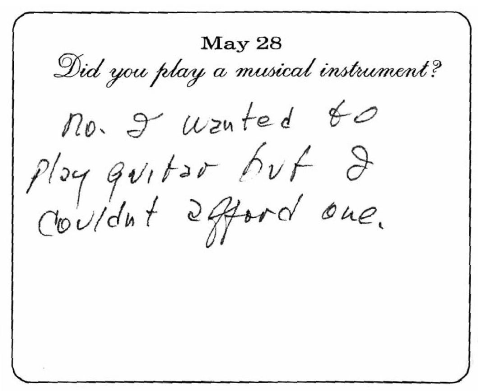 May 28
Did you play a musical instrument?
No. I wanted to
play guitar but I
couldnt afford one.